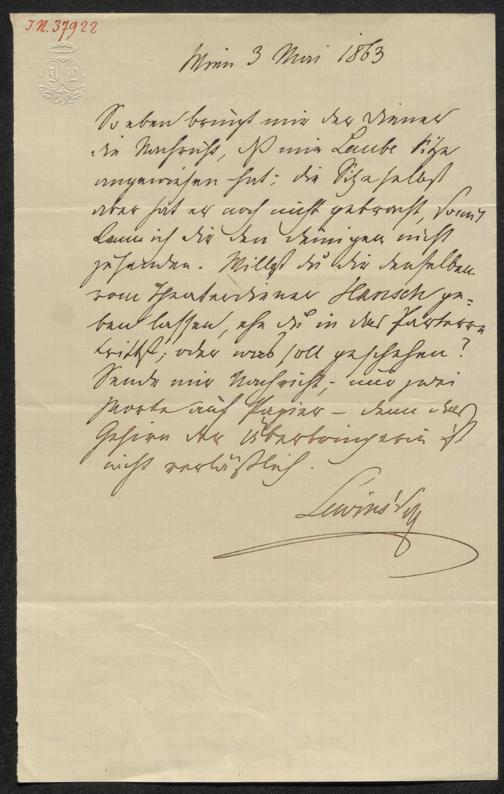 I.N. 37922
Wien 3 Mai 1863
So eben bringt mir der Diener
die Nachricht, dß mir Laube Sitze
angewiesen hat; die Sitze selbst
aber hat er noch nicht gebracht, somit
kann ich dir den deinigen nicht
zusenden. Willst du dir denselben
vom Theaterdiener Hansch ge-
ben lassen, ehe du in das Parterre
trittst; oder was soll geschehen?
Sende mir Nachricht, nur zwei
Worte auf Papier – denn das
Gehirn der Überbringerin ist
nicht verläßlich.
Lewinsky